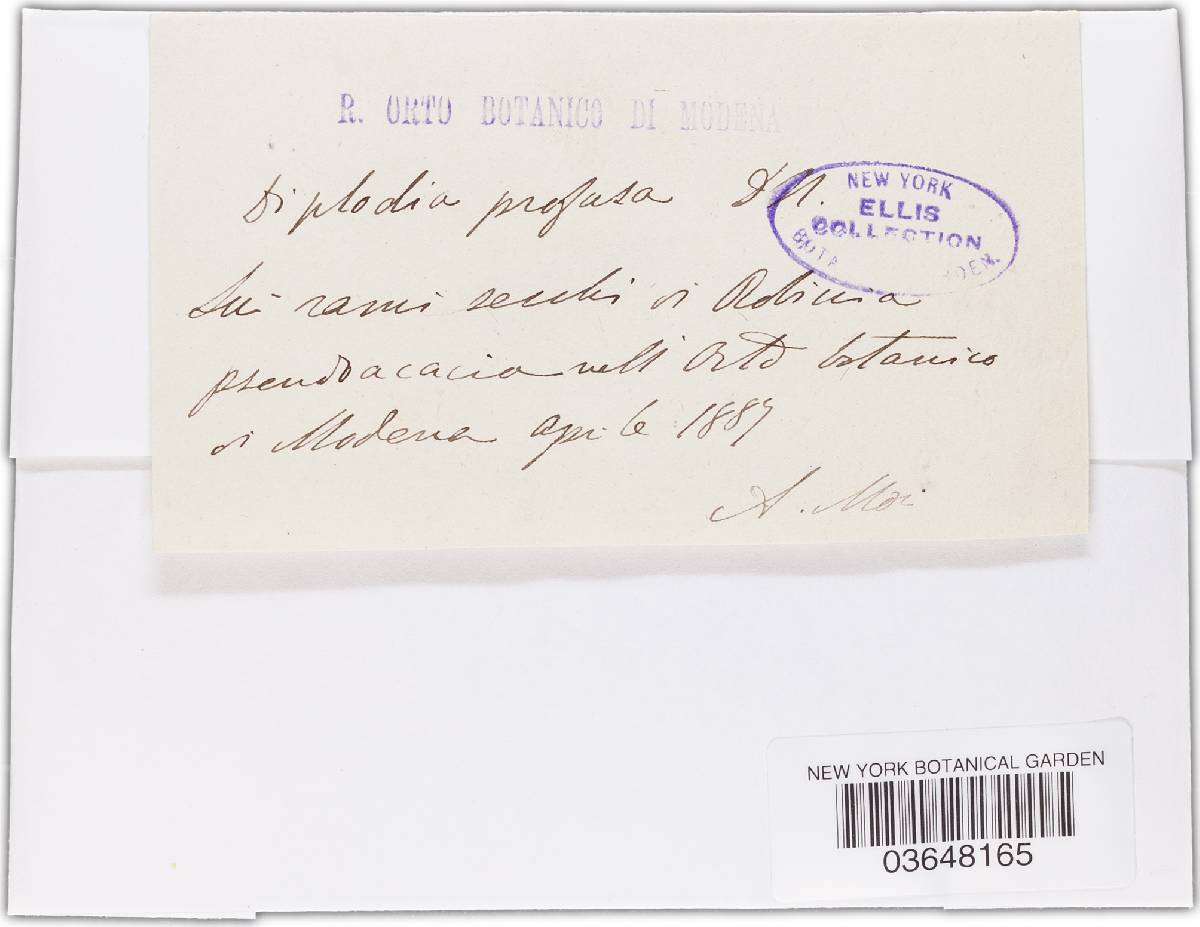 R. ORTO BOTANICO DI MODENA
Diplodia profusa DN.
NEW YORK
ELLIS
COLLECTION
BOTA DEN.
Sui rami secchi di Robinia
pseudoacacia nell' Orto botanico
di Modena aprile 1887
A. Mori
NEW YORK BOTANICAL GARDEN
03648165